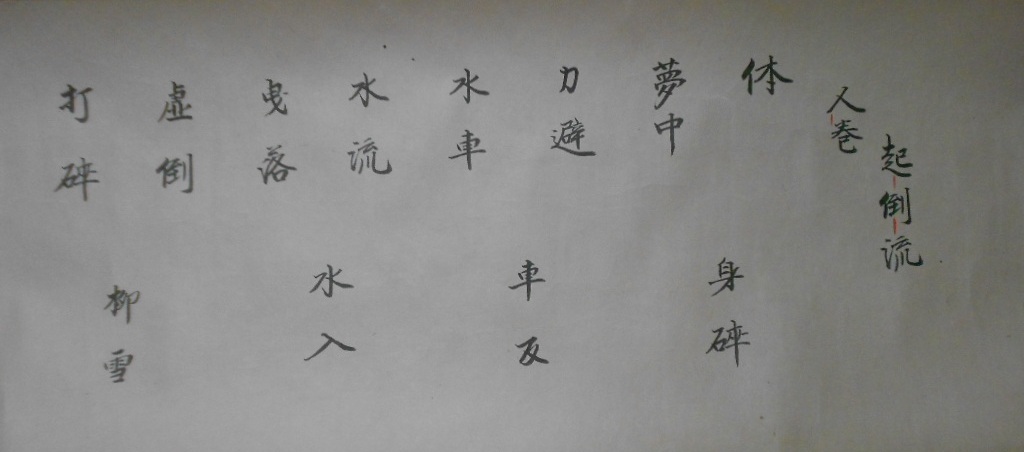 起倒流
人巻
体
夢中
力避
水車
水流
曳落
虚倒
打砕
身砕
車反
水入
柳雪